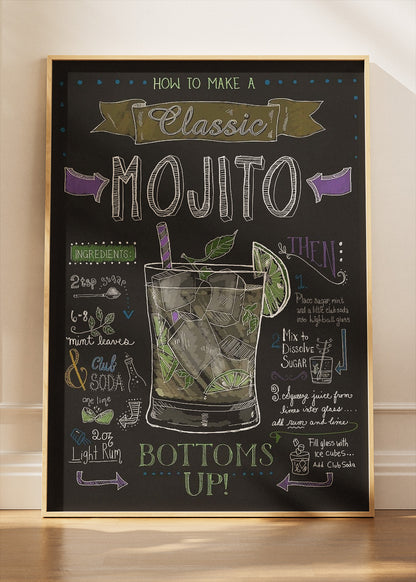 HOW TO MAKE A
Classic
MOJITO
INGREDIENTS:
2 tsp sugar
6-8
mint leaves
& Club
SODA
one lime
2 oz
Light Rum
THEN:
1.
Place sugar, mint
and a little club soda
into highball glass
2.
Mix to
Dissolve
SUGAR
3. squeeze juice from
limes into glass....
add rum and lime
Fill glass with
ice cubes...
Add Club Soda
BOTTOMS
UP!